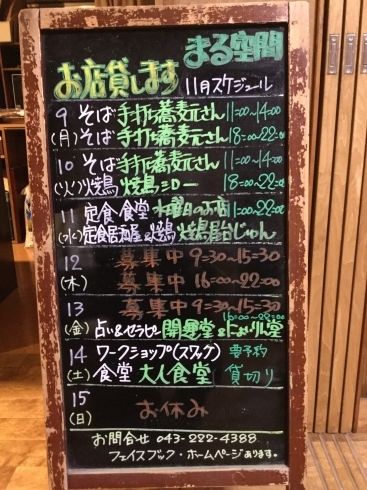 まる空間
お店貸します 11月スケジュール
9 そば 手打ち蕎麦元さん 11:00～14:00
(月) そば 手打ち蕎麦元さん 18:00～22:00
10 そば 手打ち蕎麦元さん 11:00～14:00
(火) 焼鳥 焼鳥ミロー 18:00～22:00
11 定食・食堂 水曜日のお店 11:00～22:00
(水) 定食居酒屋&焼鳥 焼鳥屋台じゅん
12 募集中 9:30～15:30
(木) 募集中 16:00～22:00
13 募集中 9:30～15:30
16:00～22:00
(金) 占い&セラピー 開運堂&にゃりん堂
14 ワークショップ(スワッグ) 要予約
(土) 食堂 大人食堂 貸切り
15
(日) お休み
お問合せ 043-222-4388
フェイスブック・ホームページあります。